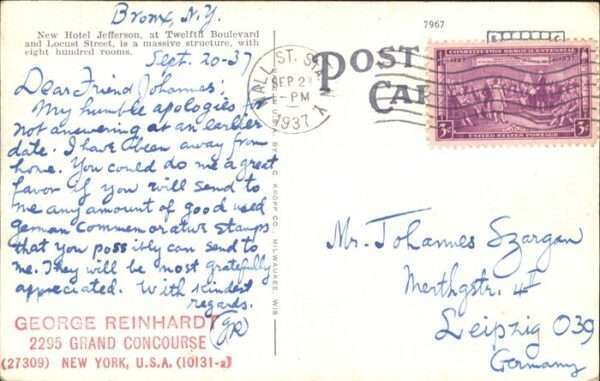 Bronx, N.Y.
New Hotel Jefferson, at Twelfth Boulevard
and Locust Street, is a massive structure, with
eight hundred rooms.
Sept. 20-37
Dear Friend Johannes:
My humble apologies for
not answering at an earlier
date. I have been away from
home. You could do me a great
favor if you will send to
me any amount of good used
German Commemorative Stamps
that you possibly can send to
me. They will be most gratefully
appreciated. With kindest
regards.
GR
GEORGE REINHARDT
2295 GRAND CONCOURSE
(27309) NEW YORK, U.S.A. (10131-a)
7967
POST
CAR
WALL ST. STA
SEP 21
-PM
1937
BY E. C. KROPP CO., MILWAUKEE, WIS.
CONSTITUTION SESQUICENTENNIAL
1787 1937
3¢ 3¢
UNITED STATES POSTAGE
Mr. Johannes Szargan
Merthgstr. 4 I
Leipzig O39
Germany